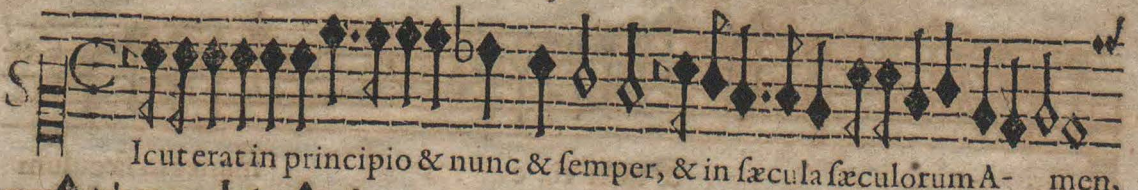 SIcut erat in principio & nunc & ſemper, & in ſæcula ſæculorum A- men,